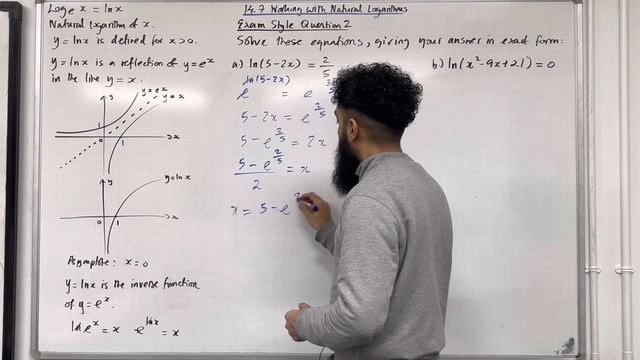 Loge x = ln x
Natural logarithm of x.
y = ln x is defined for x > 0.
y = ln x is a reflection of y = e^x
in the line y = x.
y
y = e^x
y = x
1
0
1
x
y
y = ln x
0
1
x
Asymptote: x = 0
y = ln x is the inverse function
of y = e^x.
ln e^x = x e^ln x = x
14.7 Working with Natural Logarithms
Exam Style Question 2
Solve these equations, giving your answer in exact form:
a) ln(5-2x) = 2/5
e^ln(5-2x) = e^2/5
5 - 2x = e^2/5
5 - e^2/5 = 2x
5 - e^2/5 / 2 = x
x = 5 - e
b) ln(x² - 9x + 21) = 0